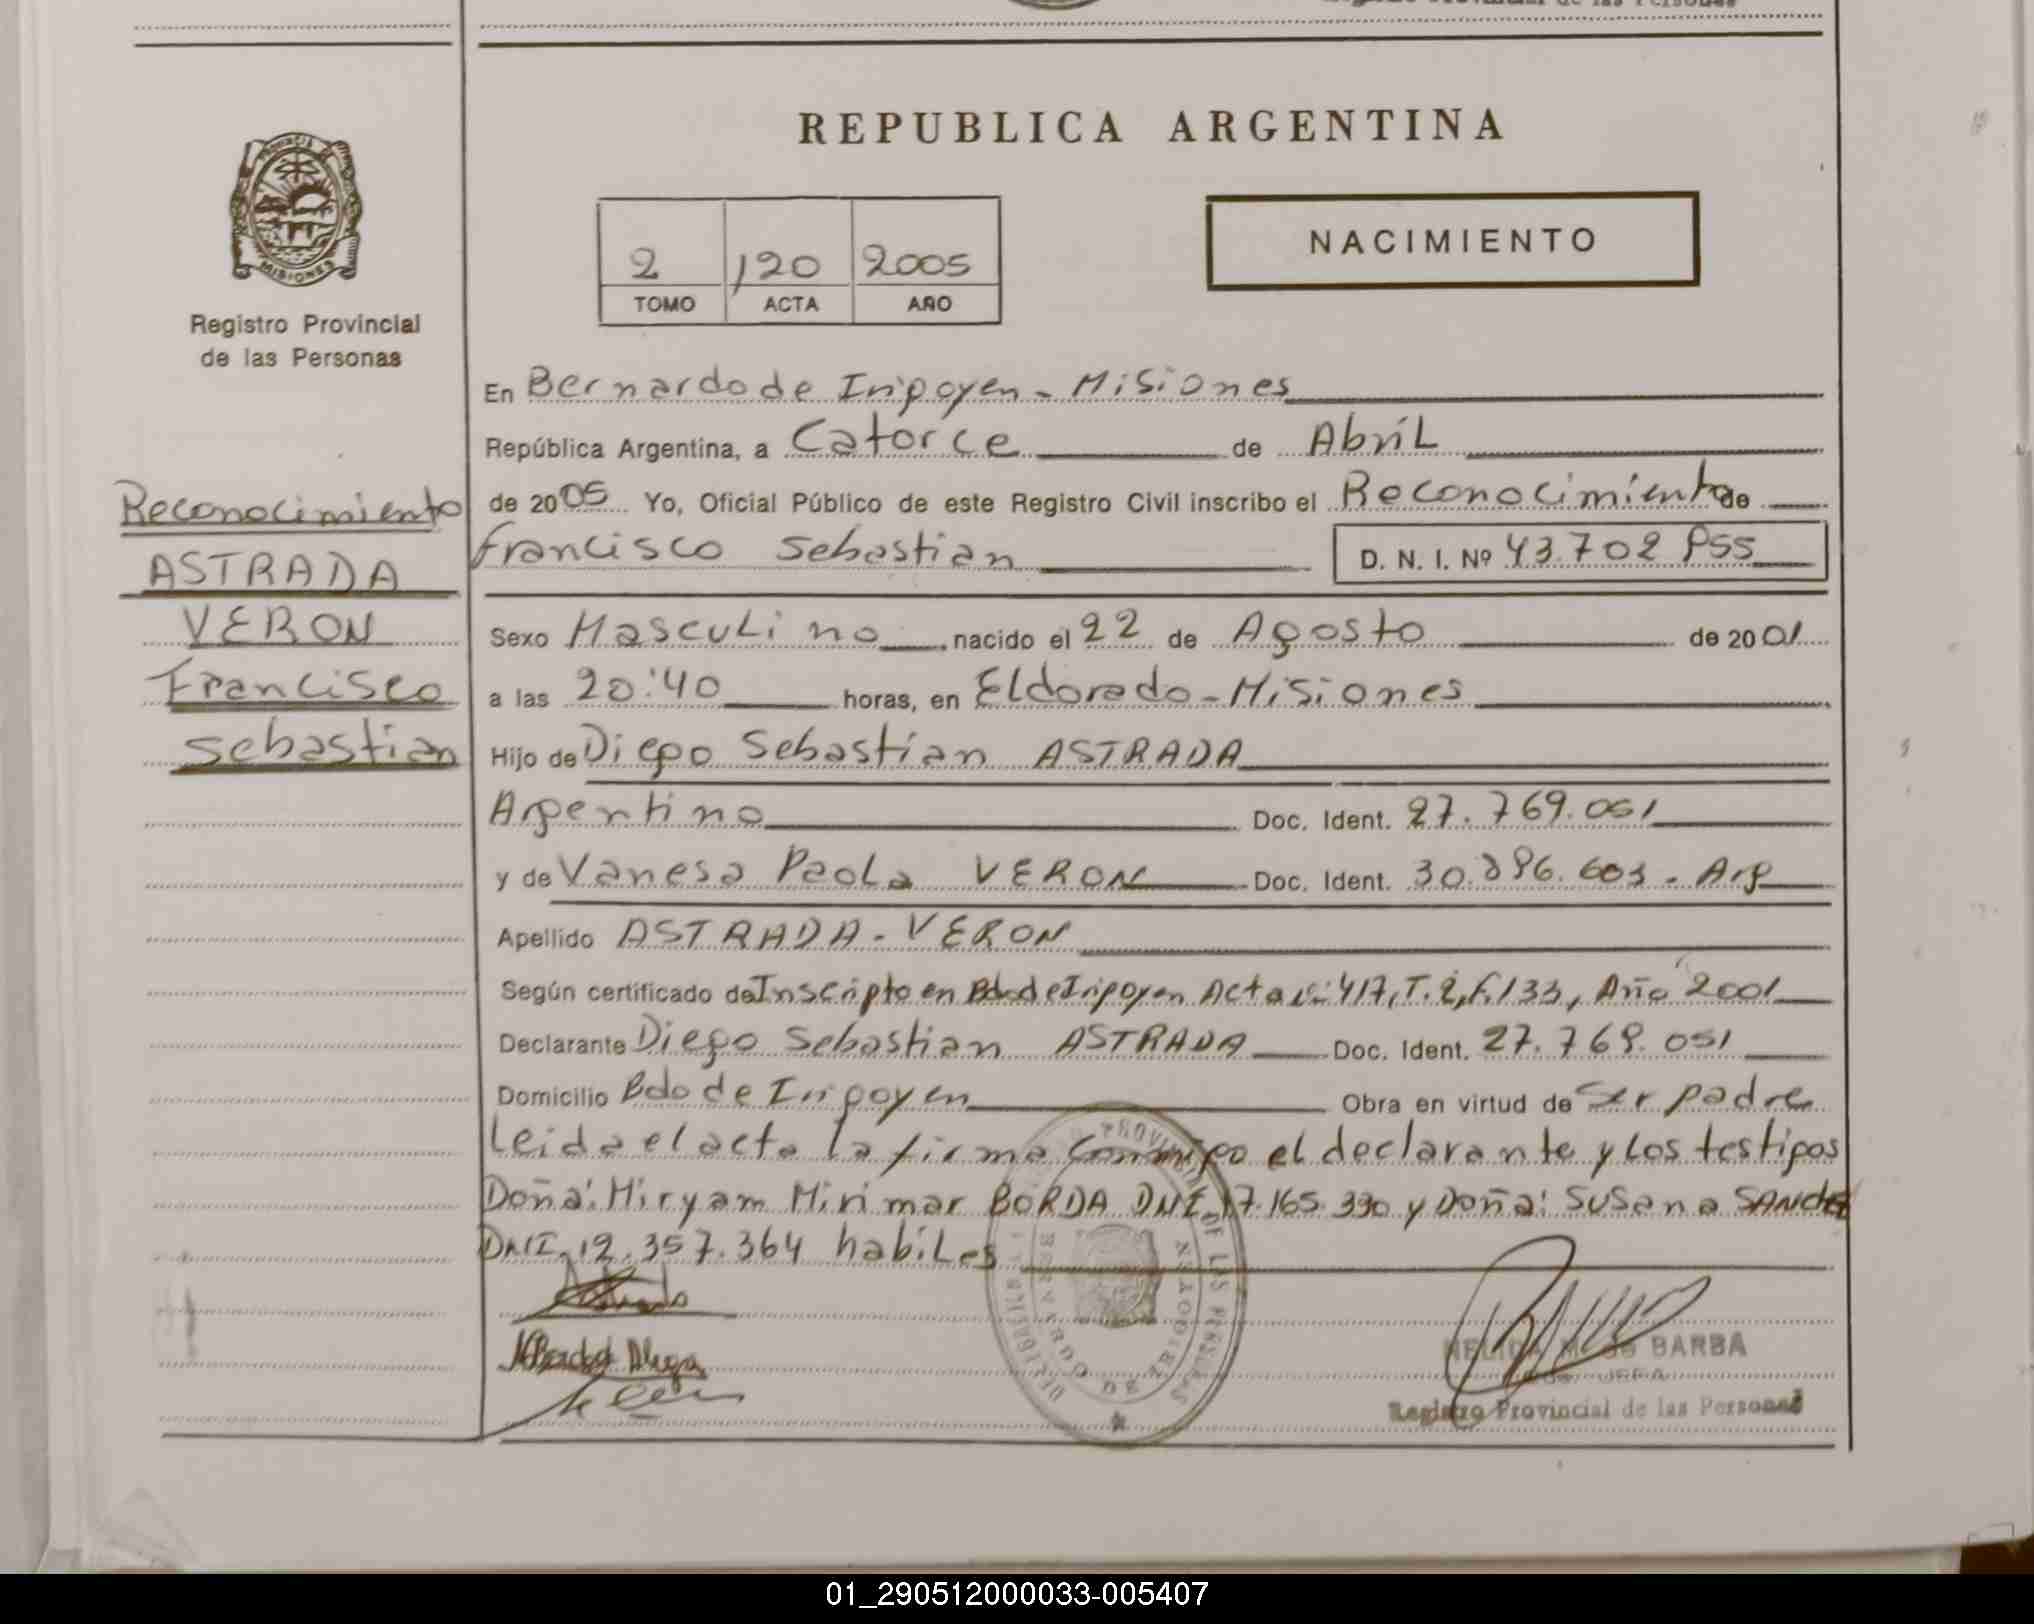 REPUBLICA ARGENTINA
PROVINCIA DE
MISIONES
Registro Provincial
de las Personas
2 120 2005
TOMO ACTA AÑO
NACIMIENTO
Reconocimiento
ASTRADA
VERON
Francisco
Sebastian
En Bernardo de Irigoyen - Misiones
República Argentina, a Catorce de Abril
de 2005 Yo, Oficial Público de este Registro Civil inscribo el Reconocimiento de
Francisco Sebastian D. N. I. Nº 43.702
Sexo Masculino nacido el 22 de Agosto de 2001
a las 20:40 horas, en Eldorado - Misiones
Hijo de Diego Sebastian ASTRADA
Argentino Doc. Ident. 27.769.051
y de Vanesa Paola VERON Doc. Ident. - Arg
Apellido ASTRADA - VERON
Según certificado de Inscripto en Bdo de Irigoyen Acta Nº 417, T. 2, F. 133, Año 2001
Declarante Diego Sebastian ASTRADA Doc. Ident. 27.769.051
Domicilio Bdo de Irigoyen Obra en virtud de ser padre
Leida el acta la firma conmigo el declarante y los testigos
Doña: Miryam Mirimar BORDA DNI 17.165.330 y Doña: Susana
DNI. 12.357.364 habiles
BARBA
Registro Provincial de las Personas
01_290512000033-005407